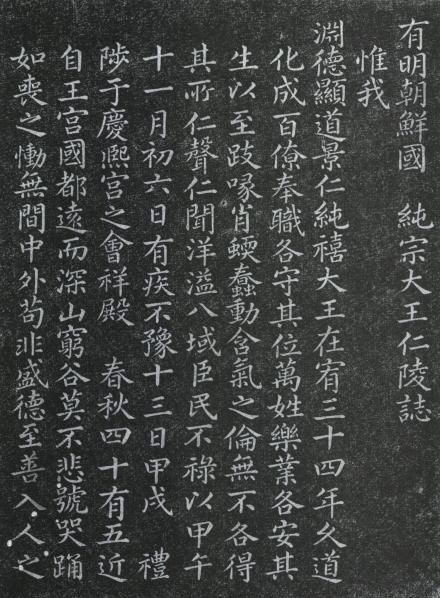 有明朝鮮國　純宗大王仁陵誌
惟我
淵德顯道景仁純禧大王在宥三十四年久道
化成百僚奉職各守其位萬姓樂業各安其
生以至跂喙肖蝡蠢動含氣之倫無不各得
其所仁聲仁聞洋溢八域臣民不祿以甲午
十一月初六日有疾不豫十三日甲戌　禮
陟于慶熙宮之會祥殿　春秋四十有五近
自王宮國都遠而深山窮谷莫不悲號哭踊
如喪之慟無間中外苟非盛德至善入人之